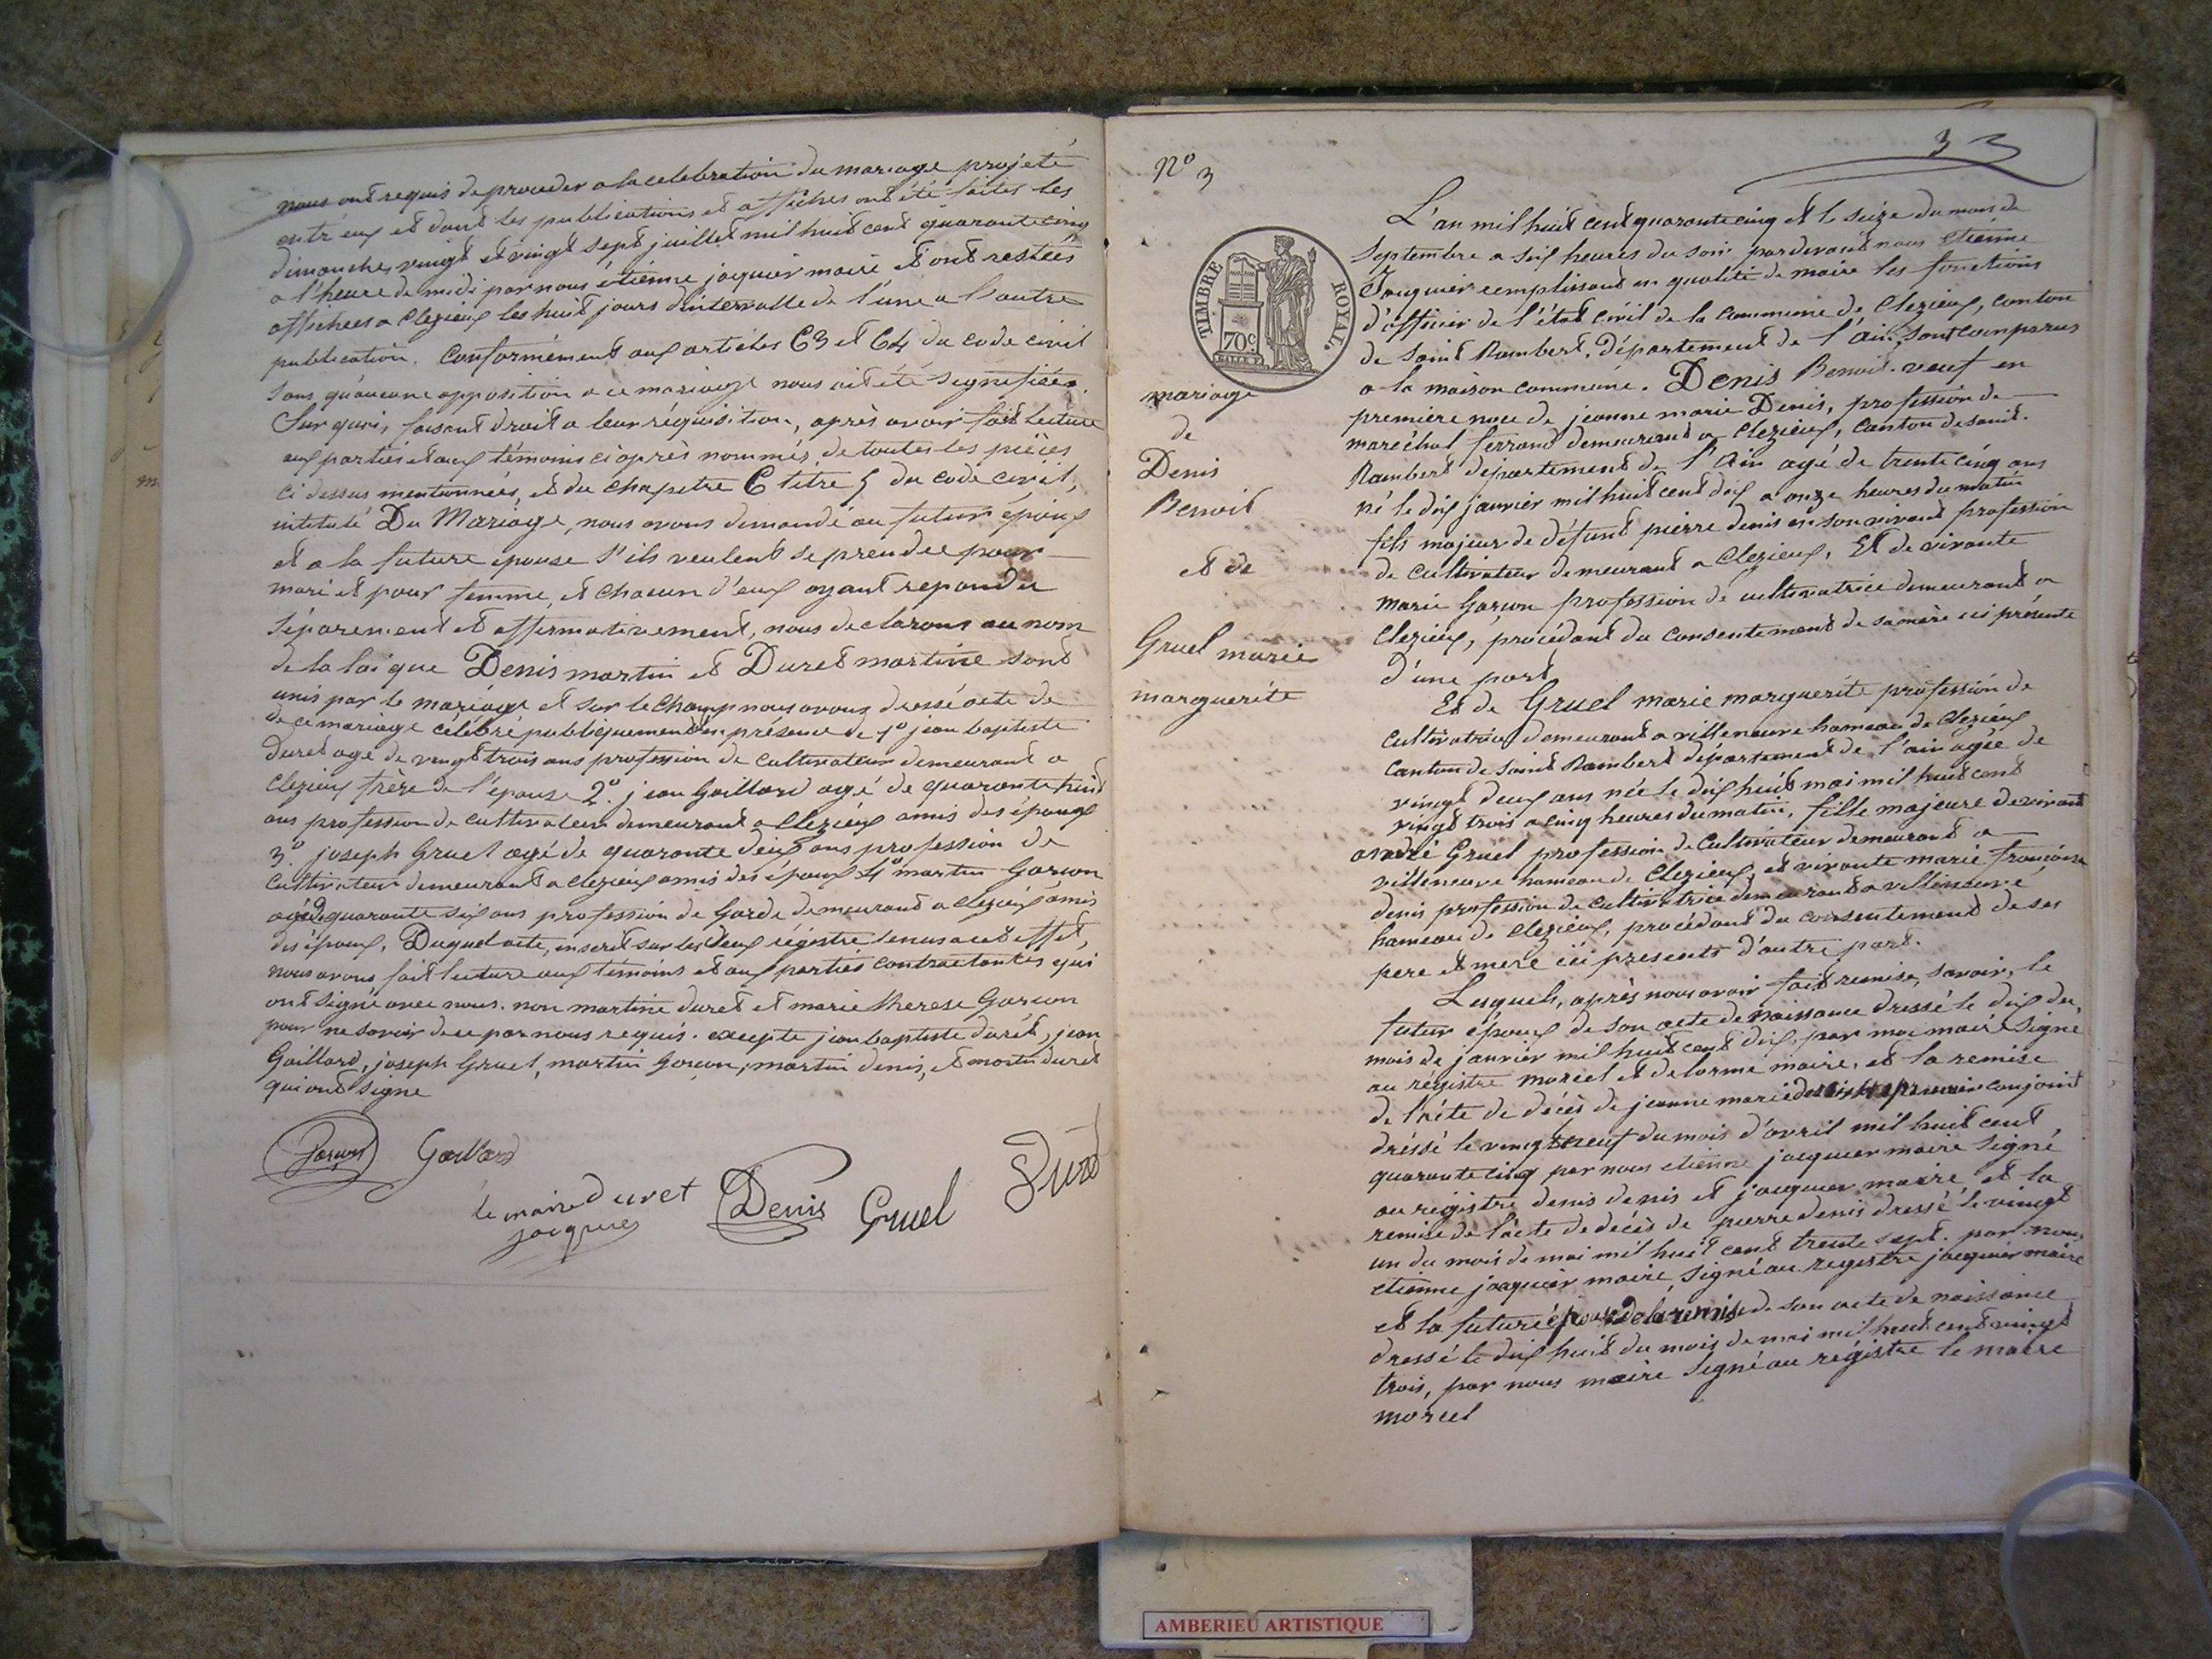 nous ont requis de proceder a la celebration du mariage projeté
entr'eux et dont les publications et affiches ont été faites les
dimanches vingt et vingt sept juillet mil huit cent quarante cinq
a l'heure de midi par nous étienne jaquier maire et ont restées
affichees a Clezieux les huit jours d'intervalle de l'une a l'autre
publication. Conformément aux articles 63 et 64 du code civil
sans qu'aucune opposition a ce mariage nous ait été signifiée.
Sur quoi, faisant droit a leur réquisition, après avoir fait lecture
aux parties et aux témoins ci après nommés, de toutes les pièces
ci dessus mentionnées, et du chapitre 6 titre 5 du code civil,
intitulé Du Mariage, nous avons demandé au futur époux
et a la future epouse s'ils veulent se prendre pour
mari et pour femme, et chacun d'eux ayant repondu
séparement et affirmativement, nous declarons au nom
de la loi que Denis martin et Duret martine sont
unis par le mariage et sur le champ nous avons dressé acte de
de ce mariage célébré publiquement en présence de 1° jean baptiste
Duret age de vingt trois ans profession de cultivateur demeurant a
Clezieux frère de l'épouse 2°. jean Gaillard agé de quarante huit
ans profession de cultivateur demeurant a Clezieux amis des époux
3°. joseph Gruel agé de quarante deux ans profession de
cultivateur demeurant a clezieux amis des époux 4° martin Garcon
agé de quarante six ans profession de Garde demeurant a clezieux amis
des époux. Duquel acte, inscrit sur les deux régistre tenus a cet effet,
nous avons fait lecture aux témoins et aux parties contractantes qui
ont signé avec nous. non martine duret et marie therese Garcon
pour ne savoir de ce par nous requis. excepte jean baptiste durét, jean
Gaillard, joseph Gruel, martin Garcon, martin denis, et martin duret
qui ont signe
Garcon Gaillard
le maire duret Denis Gruel Duret
jacquier
N° 3
3
TIMBRE ROYAL.
70c
mariage
de
Denis
Benoit
et de
Gruel marie
marguerite
L'an mil huit cent quarante cinq et le seize du mois de
septembre a six heures du soir pardevant nous etienne
Jaquier remplissant en qualité de maire les fonctions
d'officier de l'état civil de la commune de Clezieux, canton
de saint Rambert, département de l'Ain, sont comparus
a la maison commune. Denis Benoit. veuf en
premiere noce de jeanne marie Denis, profession de
maréchal ferrand demeurant a Clezieux, Canton de saint.
Rambert departement de l'Ain agé de trente cinq ans
né le dix janvier mil huit cent dix a onze heures du matin
fils majeur de défunt pierre denis en son vivant profession
de cultivateur demeurant a Clezieux. Et de vivante
marie Garcon profession de cultivatrice demeurant a
Clezieux, procédant du consentement de sa mère ici présente
d'une part
Et de Gruel marie marguerite profession de
cultivatrice demeurant a villeneuve hameau de Clezieux
Canton de saint Rambert département de l'ain agée de
vingt deux ans née le dix huit mai mil huit cent
vingt trois a cinq heures du matin, fille majeure de vivant
andré Gruel profession de Cultivateur demeurant a
villeneuve hameau de Clezieux, et vivante marie francoise
denis profession de cultivatrice demeurant a villeneuve
hameau de Clezieux, procédant du consentement de ses
pere et mere ici presents d'autre part.
Lesquels, après nous avoir fait remise, savoir, le
futur époux de son acte de naissance dressé le dix du
mois de janvier mil huit cent dix, par moi maire signé
au régistre morcel et delorme maire, et la remise
de l'acte de décès de jeanne marie denis premier conjoint
dréssé le vingt neuf du mois d'avril mil huit cent
quarante cinq par nous etienne jacquier maire signé
au registre denis denis et jacquier maire, et la
remise de l'acte de decès de pierre denis dressé le vingt
un du mois de mai mil huit cent trente sept. par nous
etienne jacquier maire, signé au registre jacquier maire
et la future épouse de la remise de son acte de naissance
dressé le dix huit du mois de mai mil huit cent vingt
trois, par nous maire signé au régistre le maire
morcel
AMBERIEU ARTISTIQUE